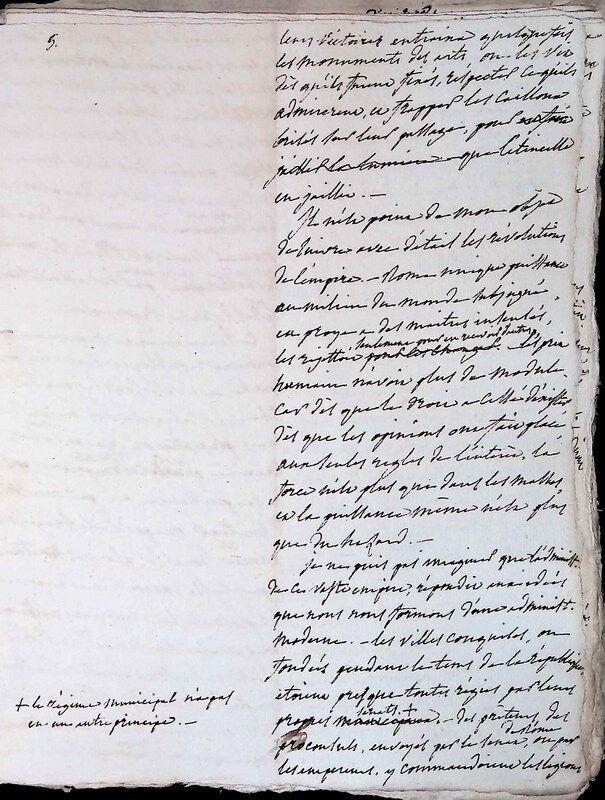 5.
leurs victoires entraina quelquefois
les monuments des arts, on les vit
dès qu'ils furent fixés, respecter ce qu'ils
admirerent, et frapper les cailloux
brisés sur leur passage, pour
que l'étincelle
en jaillit. —
Il n'est point de mon objet
de suivre avec détail les révolutions
de l'empire. — Rome unique puissance
au milieu du monde subjugué,
en proye a des maitres insensés,
les rejettoit seulement pour en recevoir d'autres.
humain n'avoit plus de modele
car dès que le droit a cessé d'exister
dès que les opinions ont fait place
aux seules regles de l'intérêt, la
force n'est plus que dans les masses
et la puissance même n'est plus
que du hazard. —
Je ne puis pas imaginer que l'administ.
de ce vaste empire, répondit aux idées
que nous nous formons d'une administ.
moderne. — les villes conquises, ou
fondées pendant le tems de la république
étoient presque toutes régies par leurs
propres sénats + — des préteurs, des
proconsuls, envoyés par le sénat de Rome, ou par
les empereurs, y commandoient les légions
+ le régime municipal n'a pas
eu un autre principe. —